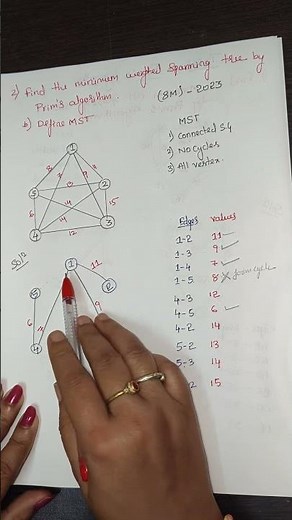 2) Find the minimum weighted Spanning tree by
Prim's algorithm. (8M) - 2023
b) Define MST
MST
1) Connected S4
2) No cycles
3) All vertex.
1
8
9
5
2
6
14
14
15
4
12
3
Soln
Edges values
1-2 11
1-3 9
1-4 7
1-5 8 form cycle
4-3 12
4-5 6
4-2 14
5-2 13
5-3 14
2 15
1
11
2
5
6
9
4